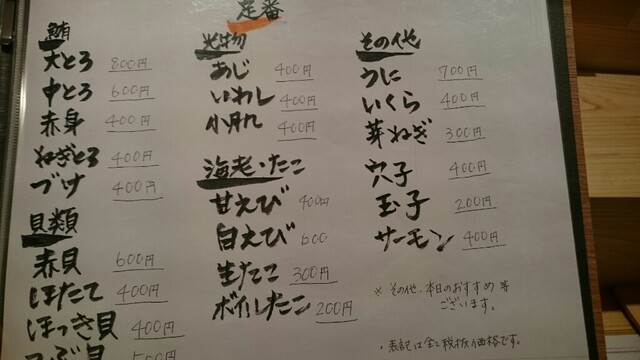 定番
鮪
大とろ 800円
中とろ 600円
赤身 400円
ねぎとろ 400円
づけ 400円
貝類
赤貝 600円
ほたて 400円
ほっき貝 400円
つぶ貝 500円
光物
あじ 400円
いわし 400円
小肌 400円
海老・たこ
甘えび 400円
白えび 600
生たこ 300円
ボイルたこ 200円
その他
うに 700円
いくら 400円
芽ねぎ 300円
穴子 400円
玉子 200円
サーモン 400円
※ その他、本日のおすすめ等
ございます。
・表記は全て税抜価格です。